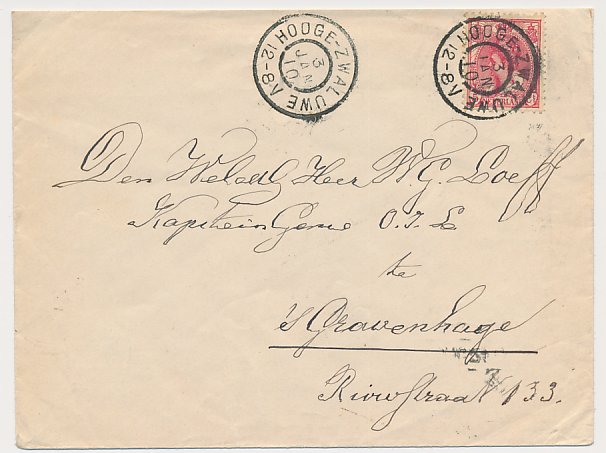 HOOGE-ZWALUWE
3
JAN
10
12-8V
HOOGE-ZWALUWE
3
JAN
10
12-8V
Den WelEdl Heer W. G. Loeff
Kapitein Genie O. I. L
te
's Gravenhage
Riouwstraat 133.